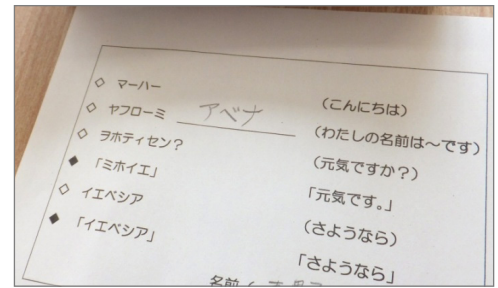 ◇ マーハー (こんにちは)
◇ ヤフローミ アベナ (わたしの名前は～です)
◇ ヲホティセン? (元気ですか?)
◆ 「ミホイエ」 「元気です。」
◇ イエベシア (さようなら)
◆ 「イエベシア」 「さようなら」
名前(